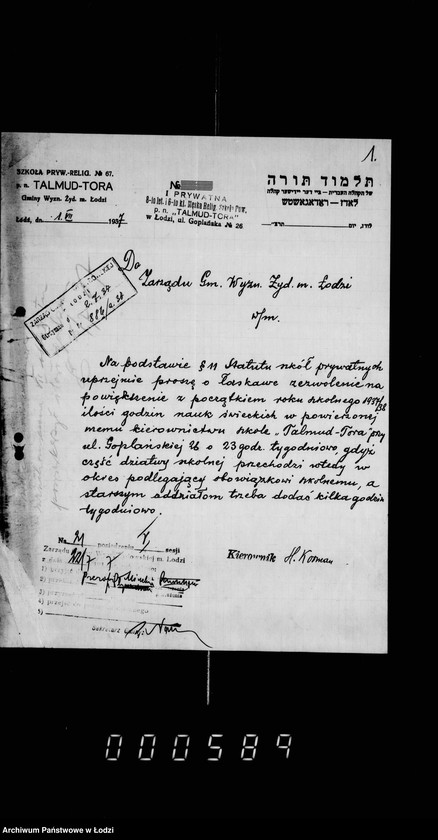 1.
SZKOŁA PRYW.-RELIG. № 67.
p. n. TALMUD-TORA
Gminy Wyzn. Żyd. m. Łodzi
Łódź, dn. 1. VII 1937
№
I PRYWATNA
p. n. „TALMUD-TORA"
w Łodzi, ul. Gopłańska № 26
תלמוד תורה
של הקהלה העברית — ביי דער יידישער קהלה
לאדז —
לודז, יום
Do
Zarządu Gm. Wyzn. Żyd. m. Łodzi
w/m.
Na podstawie § 11 Statutu szkół prywatnych
uprzejmie proszę o łaskawe zezwolenie na
powiększenie z początkiem roku szkolnego 1937/38
ilości godzin nauk świeckich w powierzonej
memu kierownictwu szkole „Talmud-Tora" przy
ul. Gopłańskiej 26 o 23 godz. tygodniowo, gdyż
część dziatwy szkolnej przechodzi wtedy w
okres podlegający obowiązkowi szkolnemu, a
starszym oddziałom trzeba dodać kilka godzin
tygodniowo.
Kierownik H. Korman
Na 21 posiedzeniu sesji
Zarządu m. Łodzi
22/7
Sekretarz
000589
Archiwum Państwowe w Łodzi